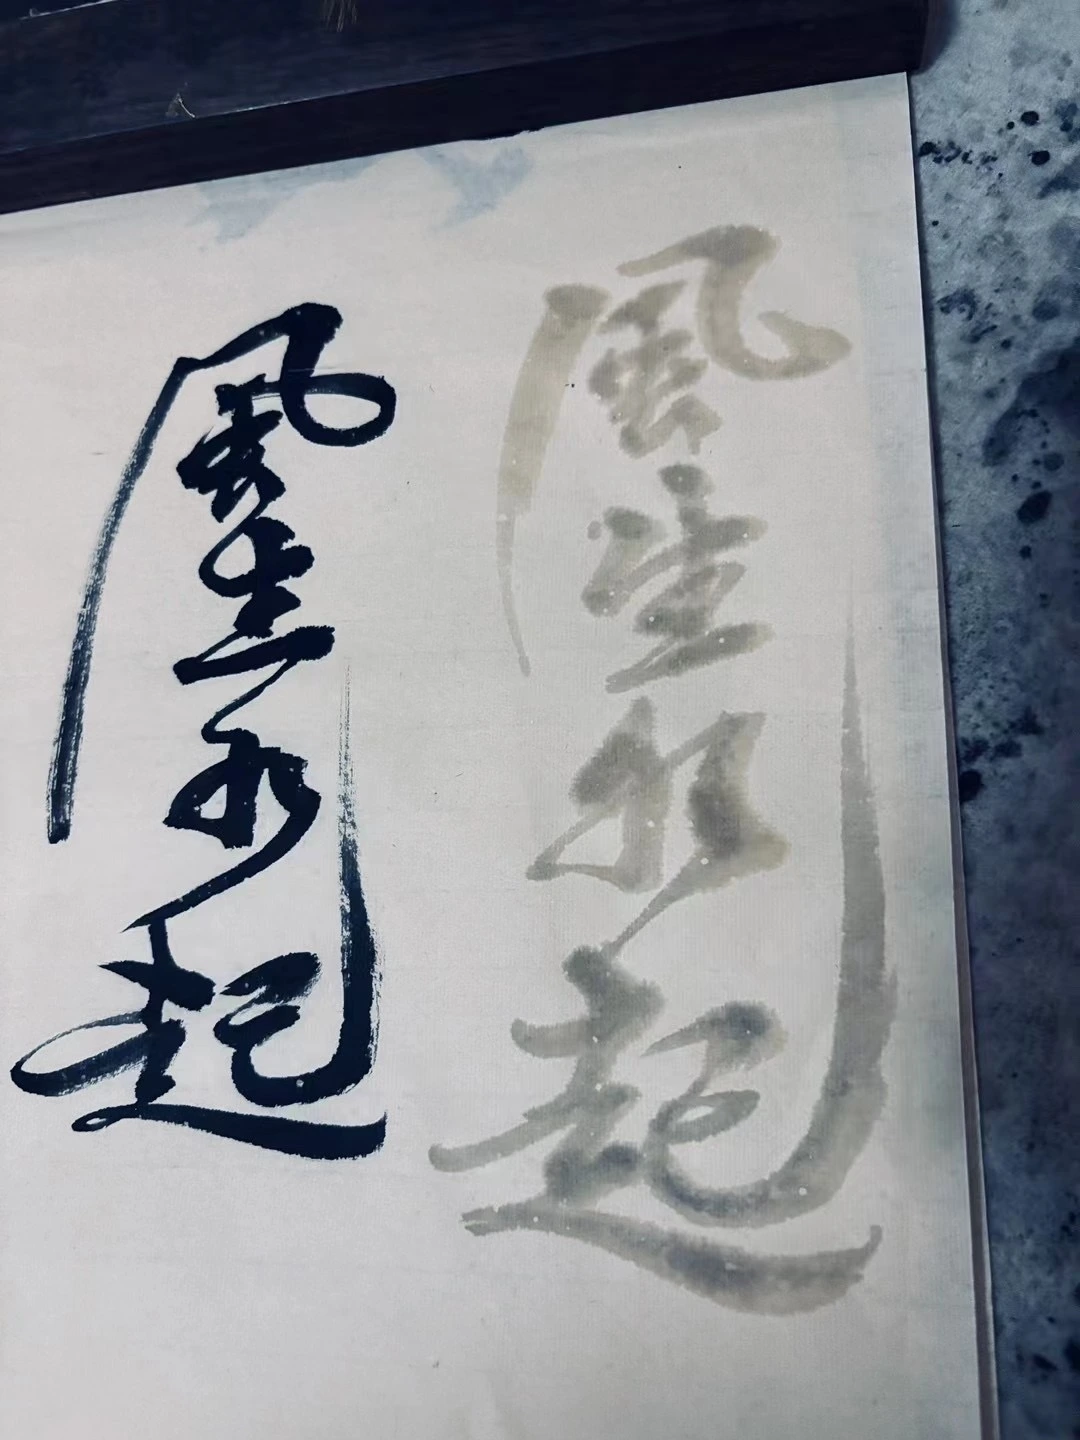 風生水起
風生水起